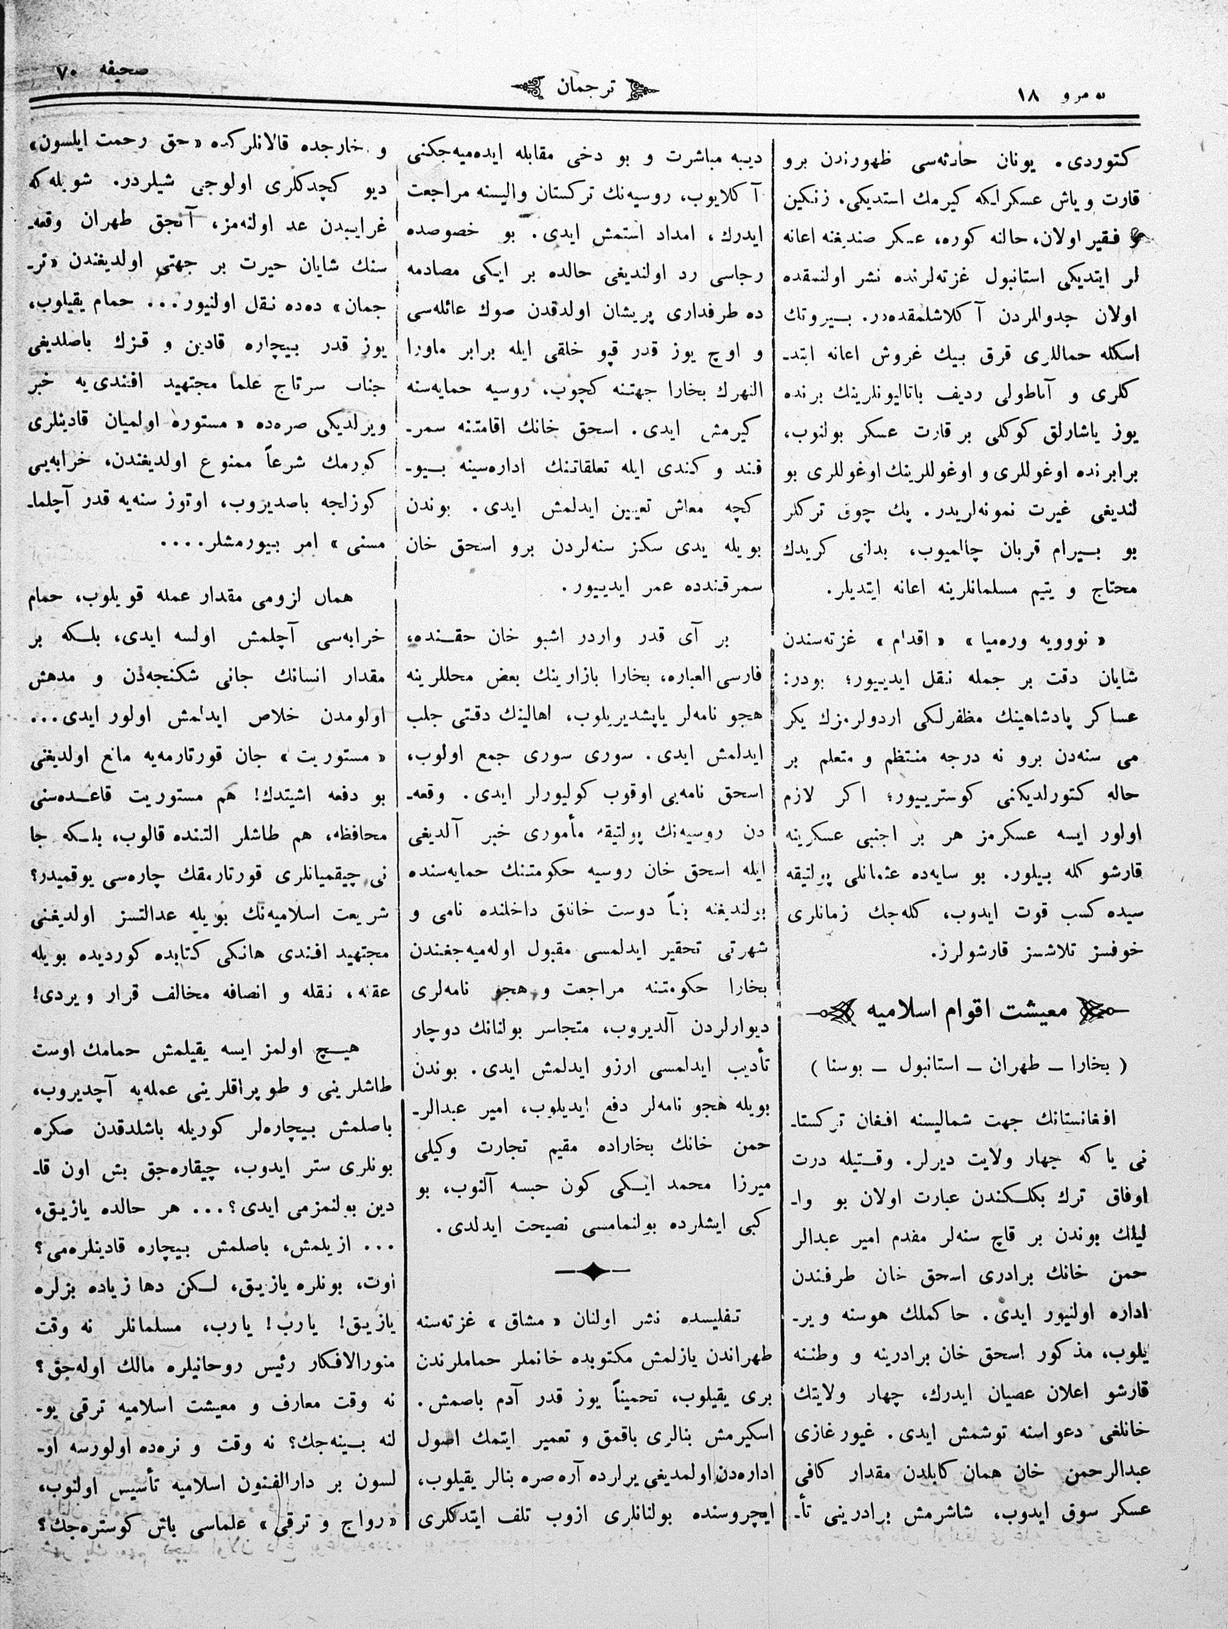 نومرو ١٨
ترجمان
صحيفه ٧٠
كتوردى. يونان حادثه‌سى ظهورندن برو
قارت و ياش عسكرلكه كيرمك استديكى. زنكين
و فقير اولان، حالنه كوره، عسكر صنديغنه اعانه
لر ايتديكى استانبول غزته‌لرنده نشر اولنمقده
اولان جدوالردن آكلاشلمقده‌در. بيروتك
اسكله حماللرى قرق بيك غروش اعانه ايتد-
كلرى و آناطولى رديف باتاليونلرينك برنده
يوز ياشارلق كوكلى بر قارت عسكر بولنوب،
برابرنده اوغوللرى و اوغوللرينك اوغوللرى بو
لنديغى غيرت نمونه‌لريدر. پك چوق تركلر
بو بيرام قربان چالميوب، بدلنى كريدك
محتاج و يتيم مسلمانلرينه اعانه ايتديلر.
« نووويه وره‌ميا » « اقدام » غزته‌سندن
شايان دقت بر جمله نقل ايدييور؛ بودر:
عساكر پادشاهينك مظفرلكى اردولرمزك يكر
مى سنه‌دن برو نه درجه منتظم و متعلم بر
حاله كتورلديكنى كوسترييور؛ اكر لازم
اولور ايسه عسكرمز هر بر اجنبى عسكرينه
قارشو كله بيلور. بو سايه‌ده عثمانلى پولتيقه
سيده كسب قوت ايدوب، كله‌جك زمانلرى
خوفسز تلاشسز قارشولرز.
معيشت اقوام اسلاميه
( بخارا ــ طهران ــ استانبول ــ بوسنا )
افغانستانك جهت شماليسنه افغان تركستا-
نى يا كه جهار ولايت ديرلر. وقتيله درت
اوفاق ترك بكلكندن عبارت اولان بو وا-
ليلك بوندن بر قاچ سنه‌لر مقدم امير عبدالر
حمن خانك برادرى اسحق خان طرفندن
اداره اولنيور ايدى. حاكملك هوسنه وير-
يلوب، مذكور اسحق خان برادرينه و وطننه
قارشو اعلان عصيان ايدرك، چهار ولايتك
خانلغى دعواسنه توشمش ايدى. غيور غازى
عبدالرحمن خان همان كابلدن مقدار كافى
عسكر سوق ايدوب، شاشرمش برادرينى تأ-
ديبه مباشرت و بو دخى مقابله ايده‌ميه‌جكنى
آكلايوب، روسيه‌نك تركستان واليسنه مراجعت
ايدرك، امداد استمش ايدى. بو خصوصده
رجاسى رد اولنديغى حالده بر ايكى مصادمه
ده طرفدارى پريشان اولدقدن صوك عائله‌سى
و اوچ يوز قدر قپو خلقى ايله برابر ماورا
النهرك بخارا جهتنه كچوب، روسيه حمايه‌سنه
كيرمش ايدى. اسحق خانك اقامتنه سمر-
قند و كندى ايله تعلقاتنك اداره‌سينه بيو-
كچه معاش تعيين ايدلمش ايدى. بوندن
بويله يدى سكز سنه‌لردن برو اسحق خان
سمرقندده عمر ايدييور.
بر آى قدر واردر اشبو خان حقنده،
فارسى العباره، بخارا بازارينك بعض محللرينه
هجو نامه‌لر ياپشديريلوب، اهالينك دقتى جلب
ايدلمش ايدى. سورى سورى جمع اولوب،
اسحق نامه‌يى اوقوب كوليورلر ايدى. وقعه-
دن روسيه‌نك پولتيقه مأمورى خبر آلديغى
ايله اسحق خان روسيه حكومتنك حمايه‌سنده
بولنديغنه بناً دوست خانلق داخلنده نامى و
شهرتى تحقير ايدلمسى مقبول اوله‌ميه‌جغندن
بخارا حكومتنه مراجعت و هجو نامه‌لرى
ديوارلردن آلديروب، متجاسر بولنانك دوچار
تأديب ايدلمسى ارزو ايدلمش ايدى. بوندن
بويله هجو نامه‌لر دفع ايديلوب، امير عبدالر-
حمن خانك بخاراده مقيم تجارت وكيلى
ميرزا محمد ايكى كون حبسه آلنوب، بو
كبى ايشلرده بولنمامسى نصيحت ايدلدى.
تفليسده نشر اولنان « مشاق » غزته‌سنه
طهراندن يازلمش مكتوبده خانملر حماملرندن
برى يقيلوب، تخميناً يوز قدر آدم باصمش.
اسكيرمش بنالرى باقمق و تعمير ايتمك اصول
اداره‌دن اولمديغى يرلرده آره صره بنالر يقيلوب،
ايچروسنده بولنانلرى ازوب تلف ايتدكلرى
و خارجده قالانلركده «حق رحمت ايلسون»
ديو كچدكلرى اولوجى شيلردر. شويله كه
غرايبدن عد اولنه‌مز، آنجق طهران وقعه-
سنك شايان حيرت بر جهتى اولديغندن «تر-
جمان» ده‌ده نقل اولنيور... حمام يقيلوب،
يوز قدر بيچاره قادين و قزك باصلديغى
جناب سرتاج علما مجتهيد افندى‌يه خبر
ويرلديكى صره‌ده « مستوره اولميان قادينلرى
كورمك شرعاً ممنوع اولديغندن، خرابه‌يى
كوزلجه باصديروب، اوتوز سنه‌يه قدر آچلما-
مسنى » امر بيورمشلر....
همان لزومى مقدار عمله قويلوب، حمام
خرابه‌سى آچلمش اولسه ايدى، بلكه بر
مقدار انسانك جانى شكنجه‌دن و مدهش
اولومدن خلاص ايدلمش اولور ايدى...
« مستوريت » جان قورتارمه‌يه مانع اولديغنى
بو دفعه اشيتدك! هم مستوريت قاعده‌سنى
محافظه، هم طاشلر التنده قالوب، بلكه جا
نى چيقميانلرى قورتارمقك چاره‌سى يوقميدر؟
شريعت اسلاميه‌نك بويله عدالتسز اولديغنى
مجتهيد افندى هانكى كتابده كورديده بويله
عقله، نقله و انصافه مخالف قرار ويردى!
هيچ اولمز ايسه يقيلمش حمامك اوست
طاشلرينى و طوپراقلرينى عمله‌يه آچديروب،
باصلمش بيچاره‌لر كوريله باشلدقدن صكره
بونلرى ستر ايدوب، چيقاره‌جق بش اون قا-
دين بولنمزمى ايدى؟... هر حالده يازيق،
... ازيلمش، باصلمش بيچاره قادينلره‌مى؟
اوت، بونلره يازيق، لكن دها زياده بزلره
يازيق! يارب! يارب، مسلمانلر نه وقت
منورالافكار رئيس روحانيلره مالك اوله‌جق؟
نه وقت معارف و معيشت اسلاميه ترقى يو-
لنه بينه‌جك؟ نه وقت و نره‌ده اولورسه او-
لسون بر دارالفنون اسلاميه تأسيس اولنوب،
«رواج و ترقى» علماسى باش كوستره‌جك؟